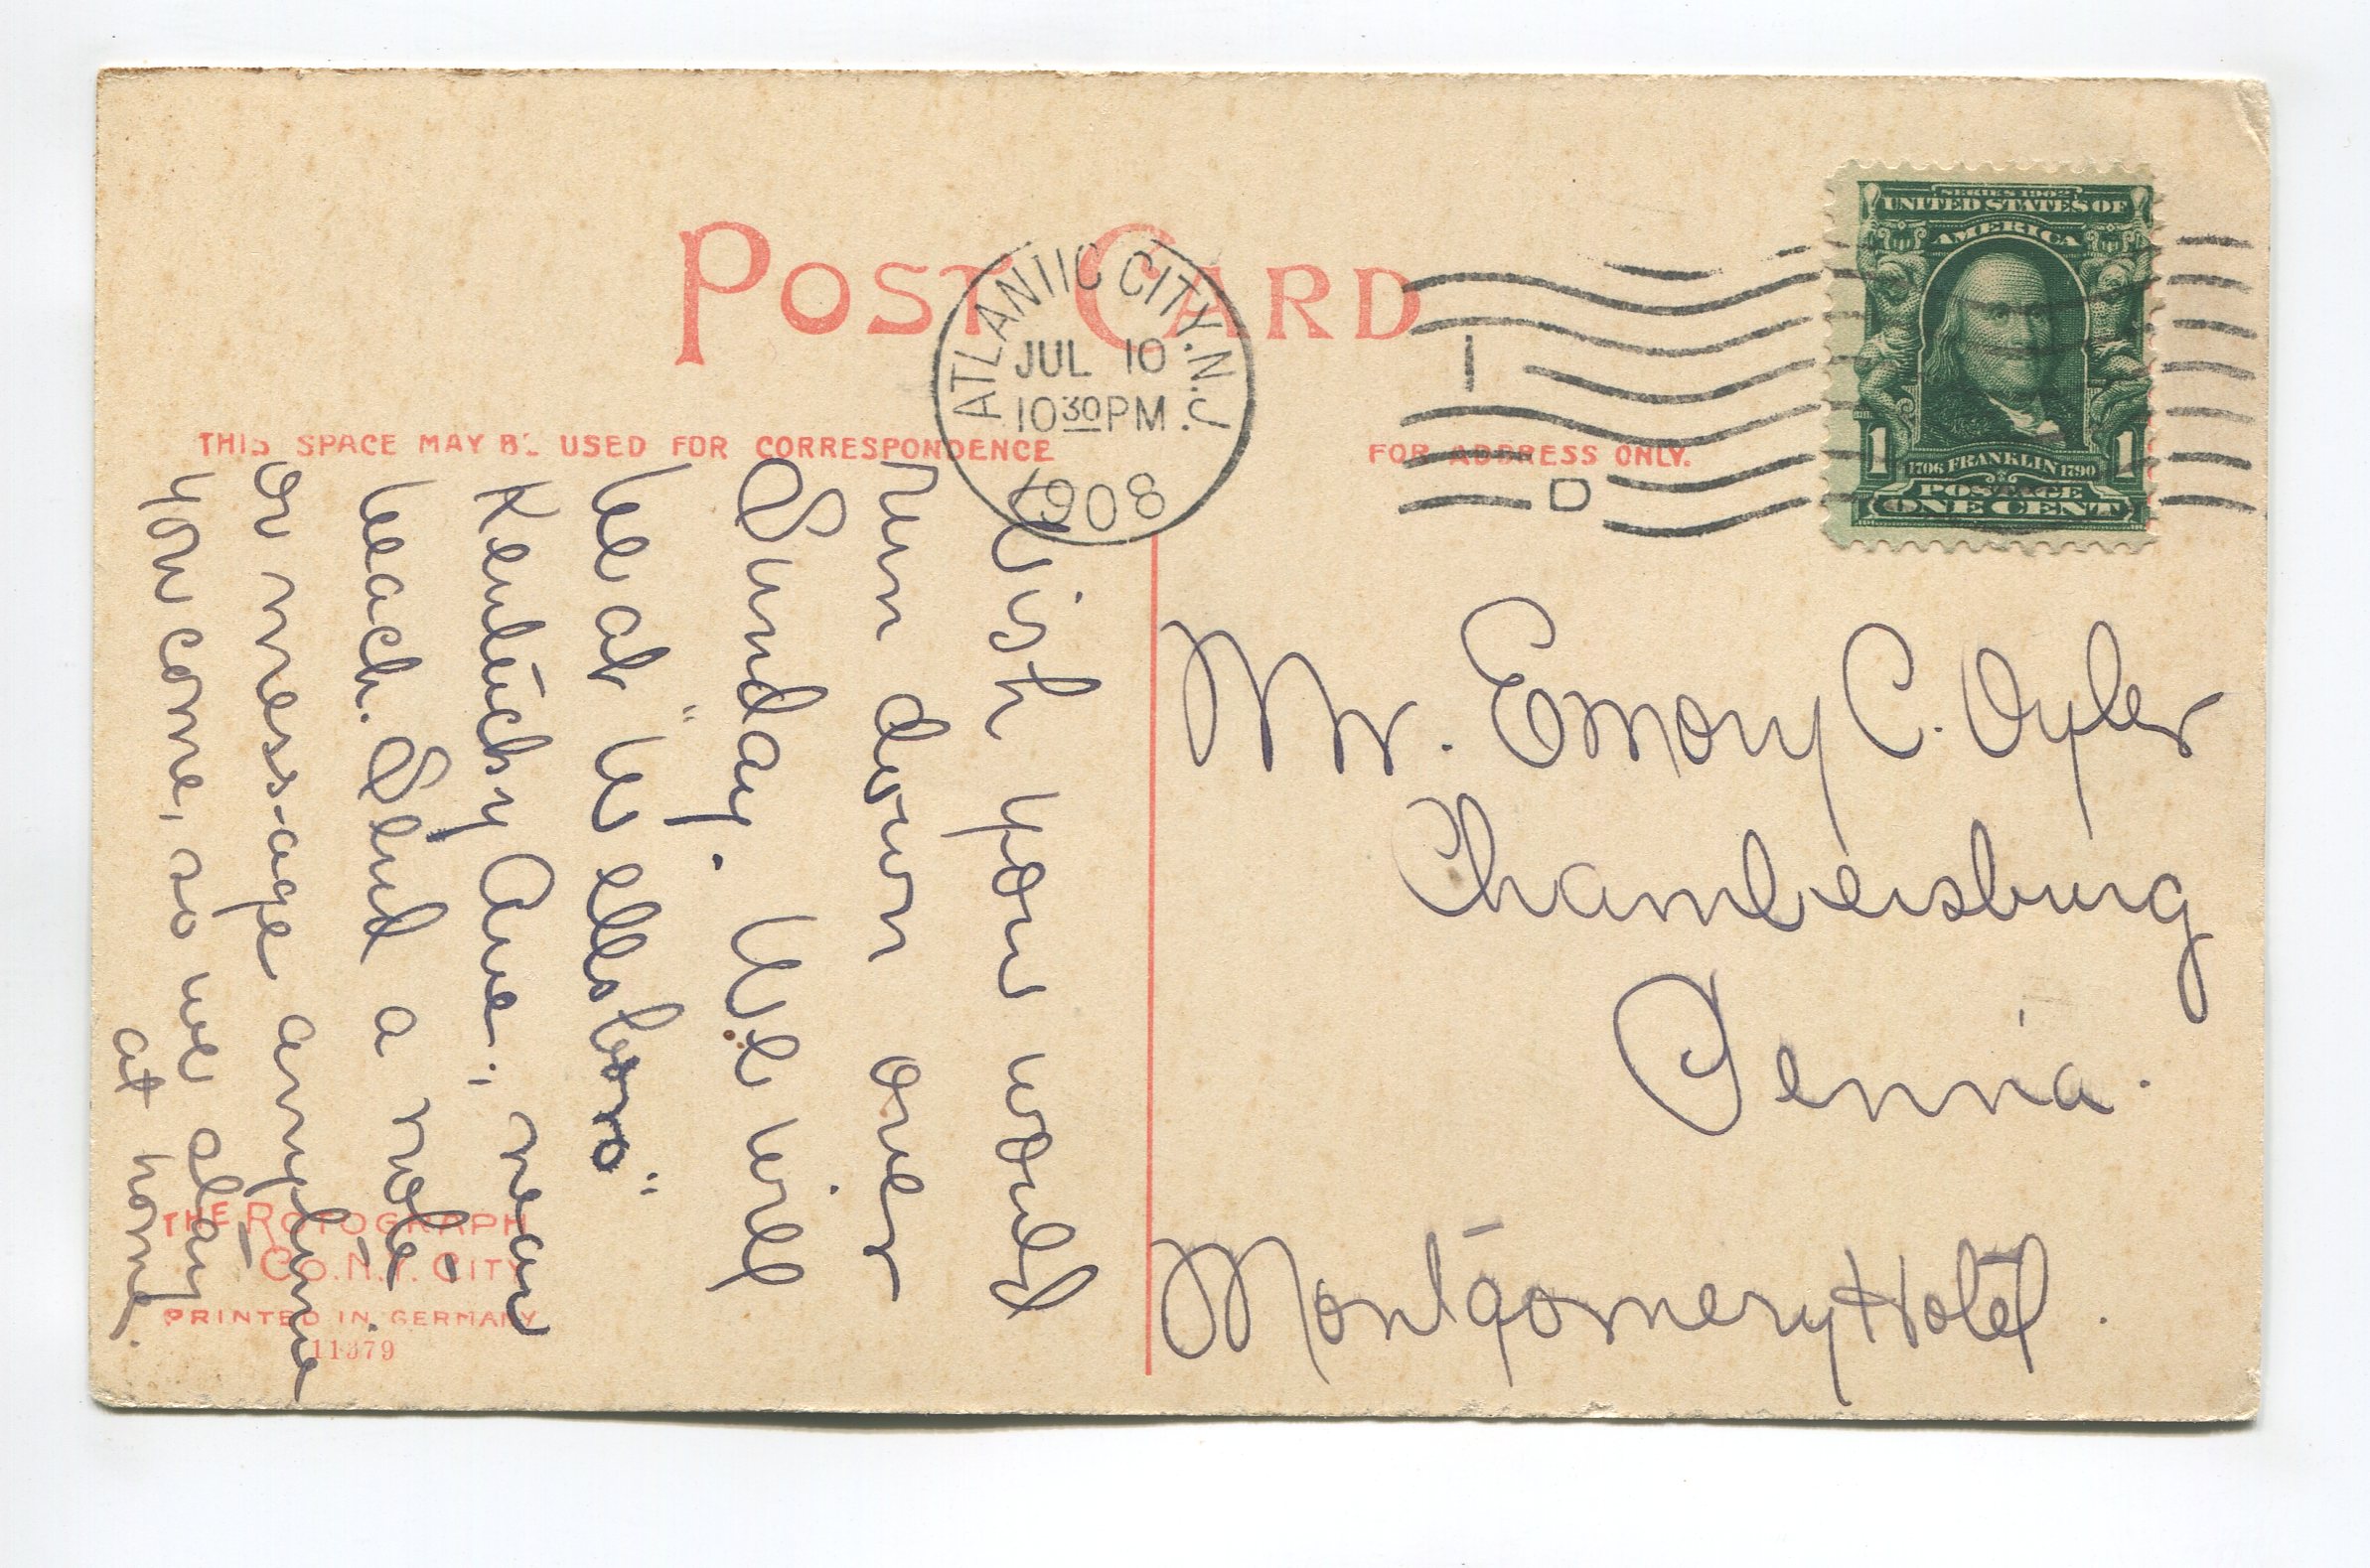 POST CARD
ATLANTIC CITY. N.J.
JUL 10
10 30 PM
1908
SERIES 1902
UNITED STATES OF
AMERICA
1706 FRANKLIN 1790
POSTAGE
1 1
ONE CENT
THIS SPACE MAY BE USED FOR CORRESPONDENCE
FOR ADDRESS ONLY.
Wish you would
run down over
Sunday. We will
be at "Wellsboro"
Kentucky Ave., near
beach. Send a note
or mess-age anytime
you come, so we stay
at home.
Mr. Emory C. Oyler
Chambersburg
Penn'a.
Montgomery Hotel.
THE ROTOGRAPH
CO. N.Y. CITY
PRINTED IN GERMANY
11379